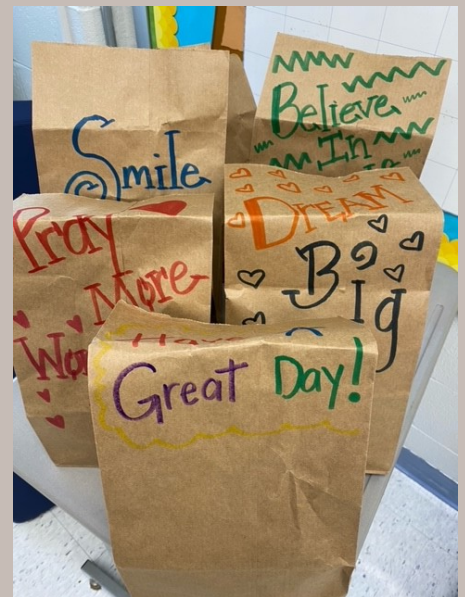 Smile
Believe
In
Pray
More
DREAM
Big
Great Day!